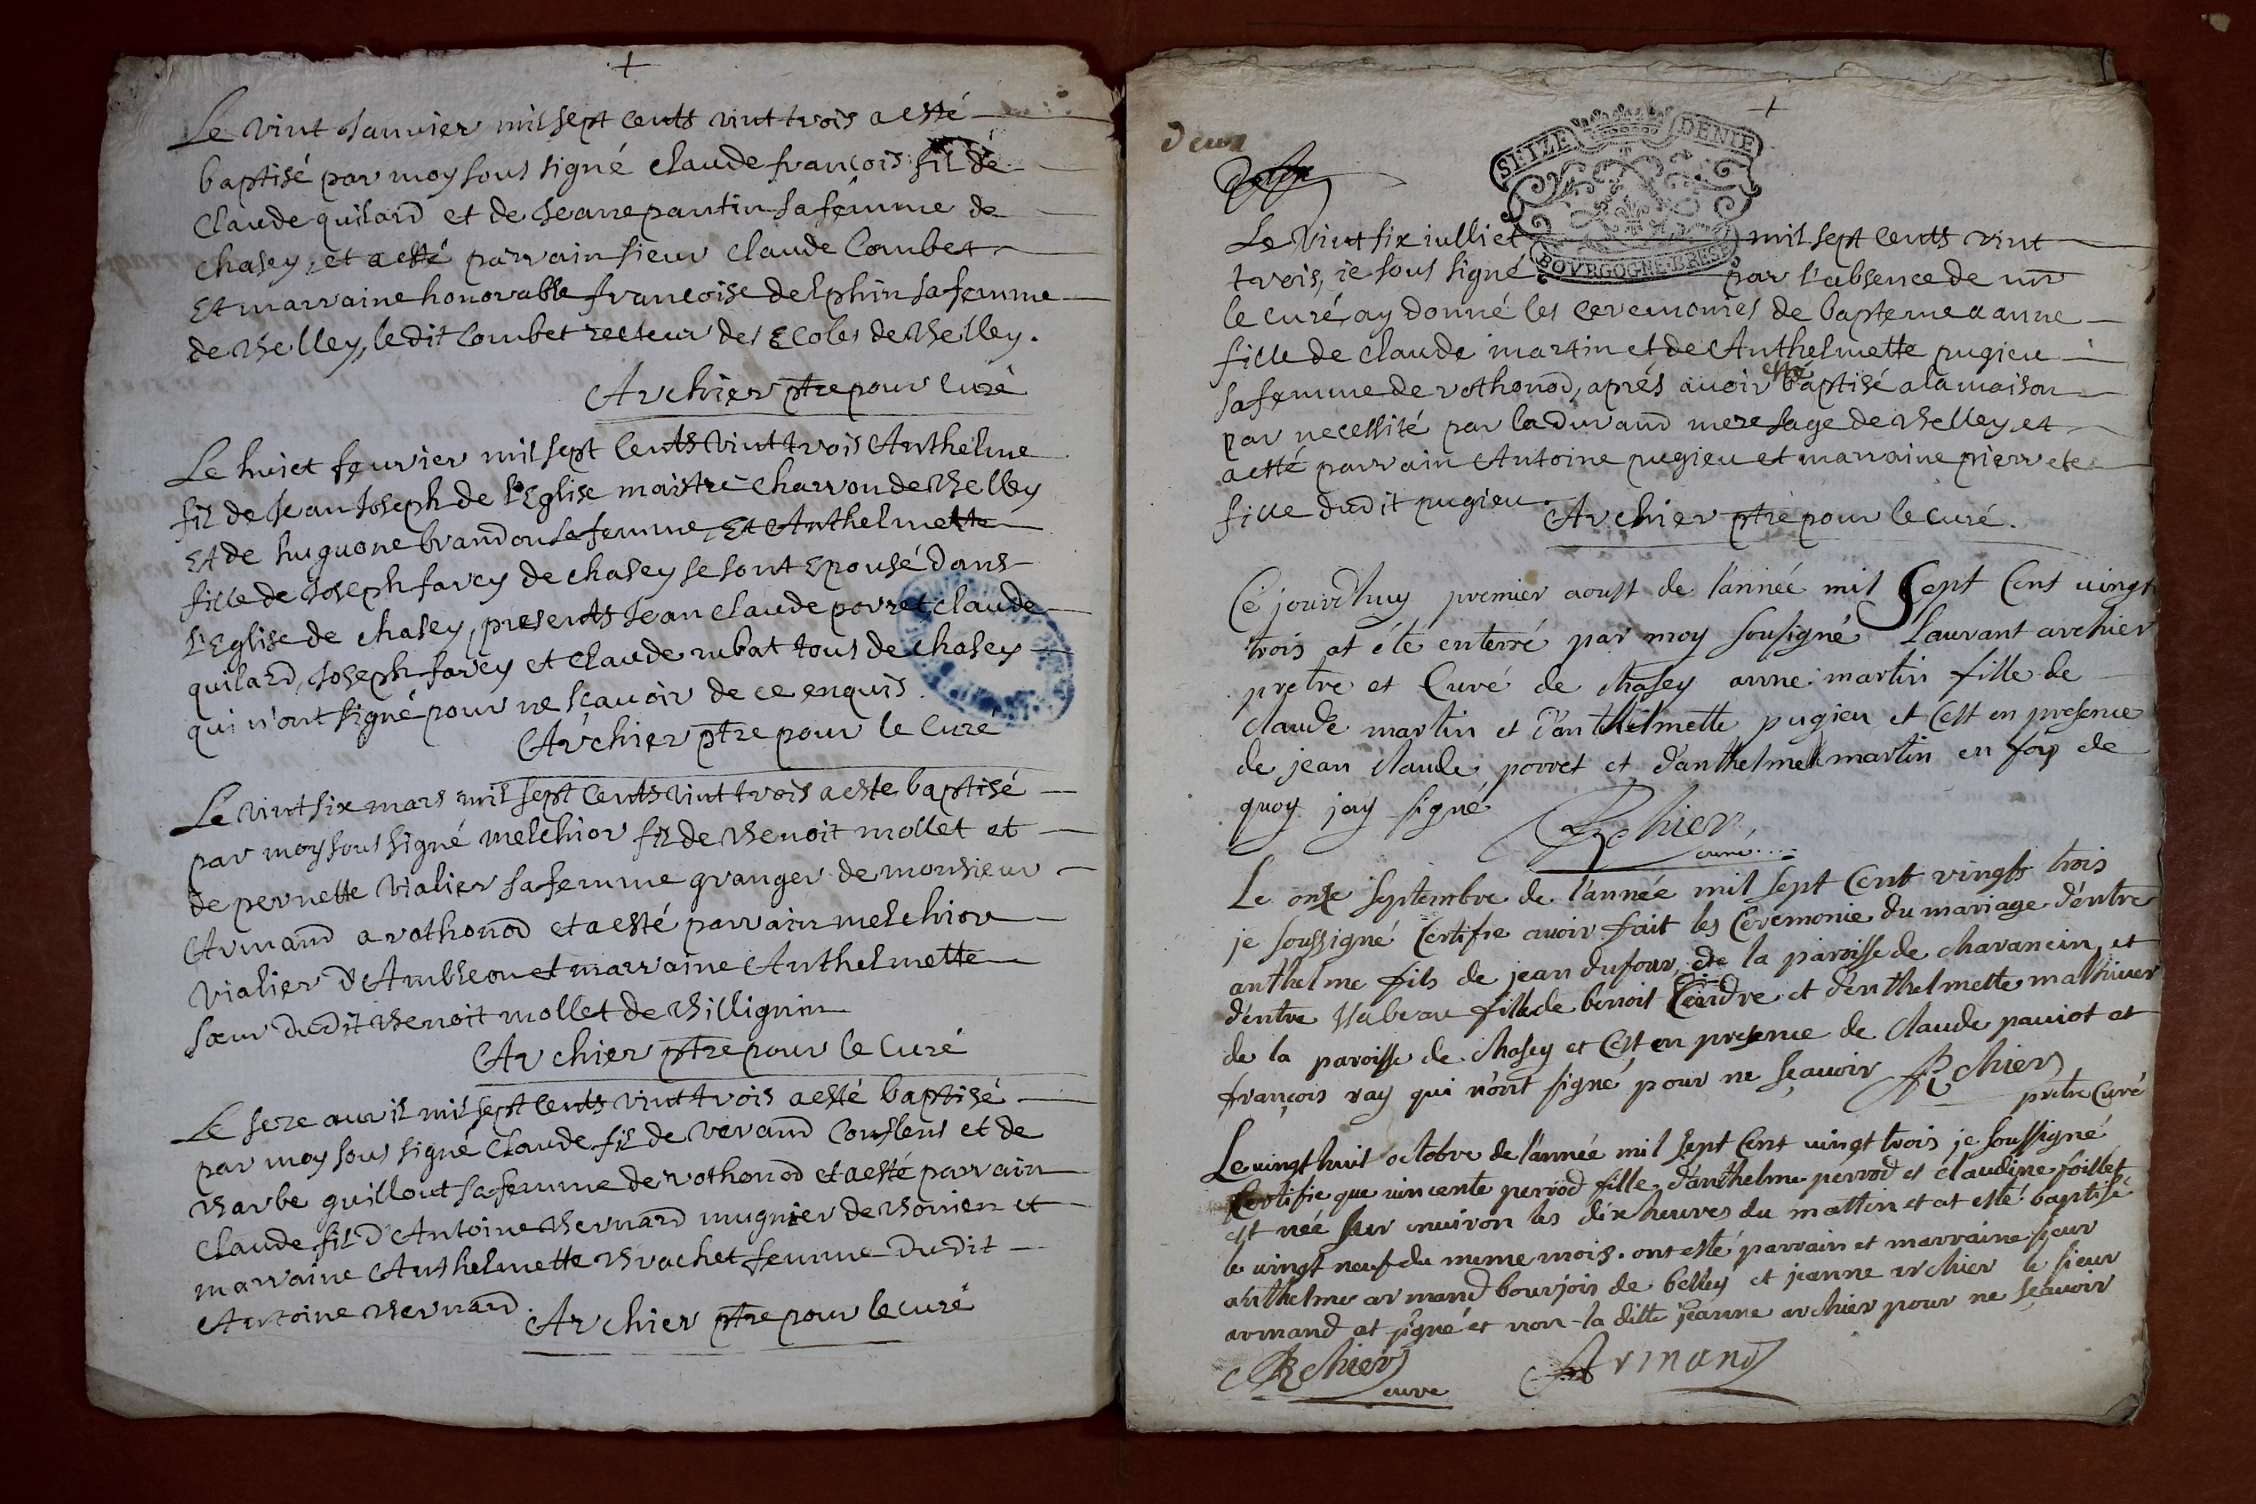 Le vint Januier mil sept cents vint trois a esté
baptisé par moy sous signé claude françois fil de
Claude quilard et de Jeanne pantin sa femme de
chasey, et a esté parrain sieur claude Combet
Et marraine honorable françoise delphin sa femme
de Belley, le dit Combet recteur des Ecoles de Belley.
Archier ptre pour le Curé
Le huict feurier mil sept Cents Vint trois Anthelme
fil de Jean Joseph de l'Eglise maistre Charron de Belley
Et de huguone brandon sa femme, Et Anthelmette
fille de Joseph farcy de chasey se sont Epousé dans
l'Eglise de chasey, presents Jean claude porret claude
quilard, Joseph farcy et claude rubat tous de chasey
qui n'ont signé pour ne sçavoir de ce enquis.
Archier ptre pour le Curé
Le vint six mars mil sept cents vint trois a esté baptisé
par moy sous signé melchior fil de Benoit mollet et
de pernette Vialier sa femme granger de monsieur
Armand a rothonod et a esté parrain melchior
Vialier d'Ambleon et marraine Anthelmette
sœur dudit Benoit mollet de Billignin
Archier ptre pour le Curé
Le seze auril mil sept cents vint trois a esté baptisé
par moy sous signé Claude fil de verand Conflens et de
Barbe guillout sa femme de rothonod et a esté parrain
Claude fil d'Antoine Bernard mugnier de Bonien et
marraine Anthelmette Brachet femme dudit
Antoine Bernard.
Archier ptre pour le curé
deux
SEIZE DENIE
BOVRGOGNE BRESSE
Le Vint six iulliet mil sept cents vint
trois, ie sous signé par l'absence de mr
le curé, ay donné les ceremonies de bapteme a anne
fille de claude martin et de Anthelmette pugieu
sa femme de rothonod, aprés auoir esté baptisé a la maison
par necessité par la durand mere sage de Belley, et
a esté parrain Antoine pugieu et marraine pierrete
fille dudit pugieu.
Archier ptre pour le curé.
Ce jourdhuy premier aoust de l'année mil Sept Cent vingt
trois at été enterré par moy sousigné Laurant archier
pretre et Curé de chasey anne martin fille de
claude martin et d'anthelmette pugieu et cest en presence
de jean claude porret et d'anthelme martin en foy de
quoy jay signé
Archier
curé
Le onze septembre de l'année mil sept Cent vingts trois
je soussigné Certifie auoir fait les Ceremonie du mariage d'entre
anthelme fils de jean dufour de la paroisse de chavancin et
d'entre ysabeau fille de benoit Cindre et d'enthelmette mathieu
de la paroisse de chasey et Cest en presence de claude paviot et
françois ray qui n'ont signé pour ne sçauoir Archier
pretre Curé
Le uingt huit octobre de l'année mil sept Cent uingt trois je soussigné
Certifie que uincente perrod fille d'anthelme perrod et claudine foillet
est née sur enuiron les dix heures du mattin et at esté baptisé
le uingt neuf du meme mois. ont esté parrain et marraine sieur
anthelme armand bourjois de belley et jeanne archier le sieur
armand at signé et non la ditte jeanne archier pour ne sçauoir
Archier Armand
cure